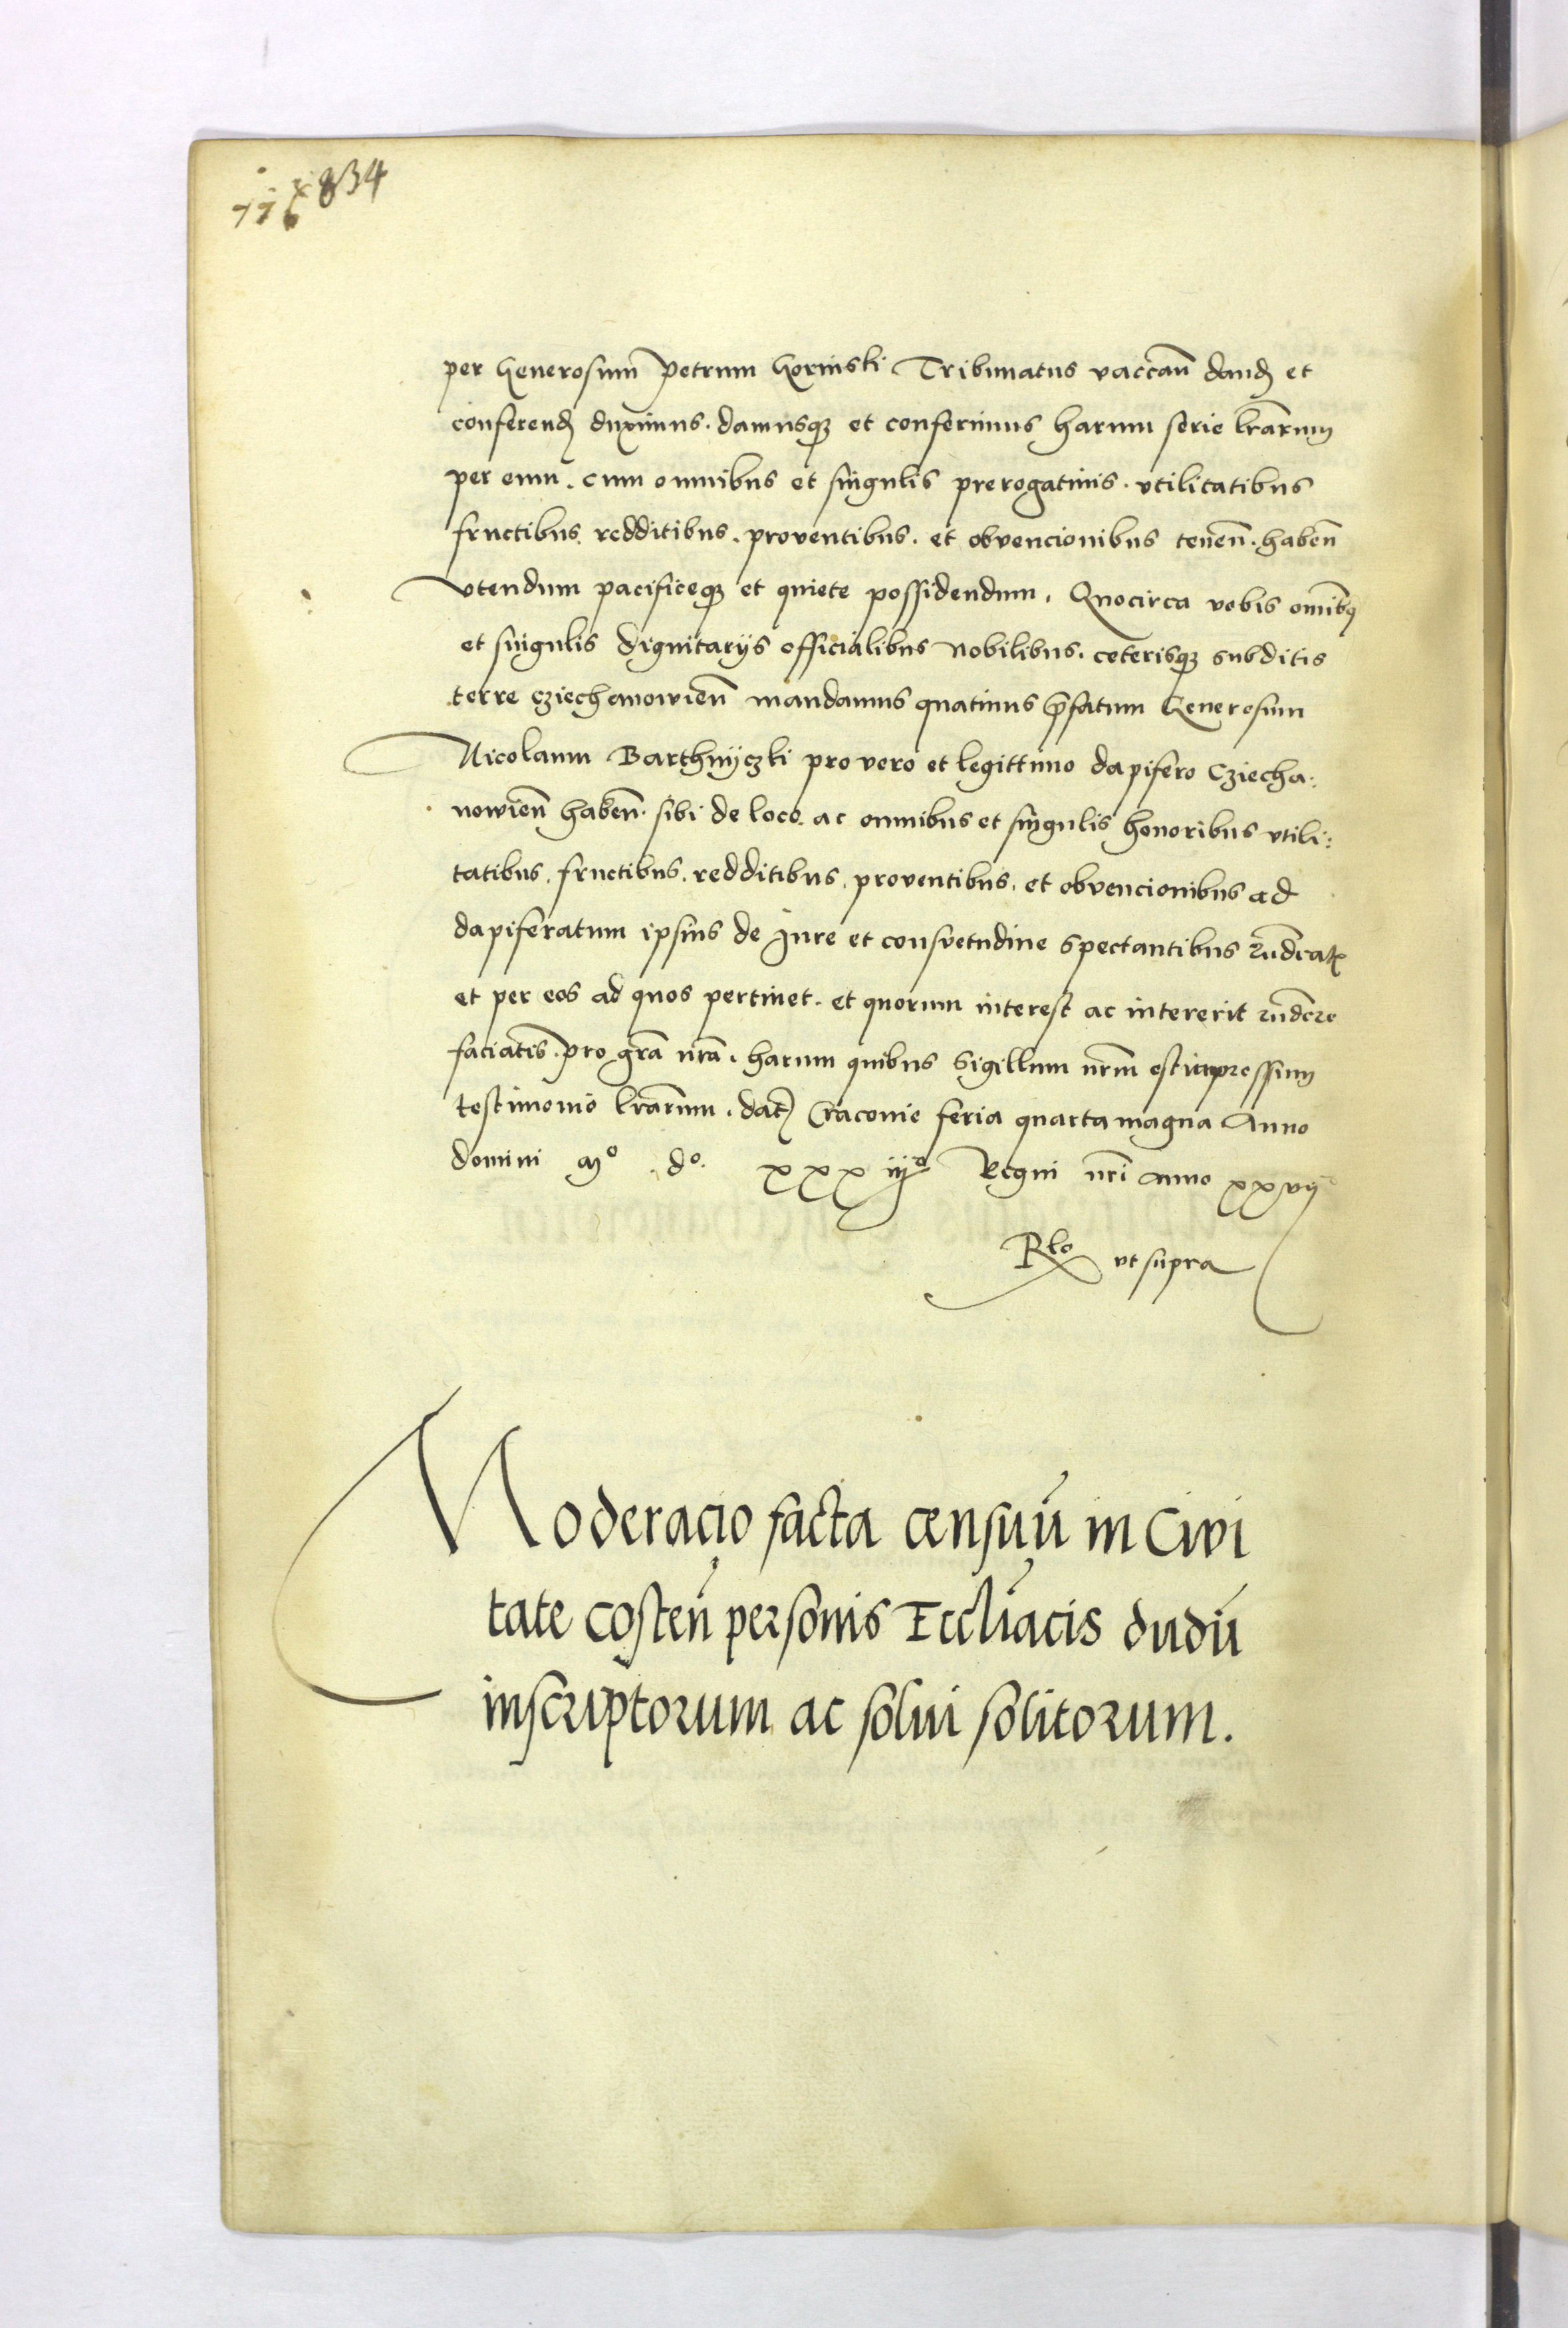 834
per Generosum Petrum Gorinski Tribunatus vaccan̄ dand et
conferend duximus. damusq; et conferimus harum serie lr̄arum
per eum. cum omnibus et singulis prerogatiuis. vtilitatibus
fructibus. redditibus. proventibus. et obvencionibus tenen̄. haben̄
vtendum pacificeq; et quiete possidendum. Quocirca vobis omīb9
et singulis dignitarijs officialibus nobilibus. ceterisq; subditis
terre Cziechanowien̄ mandamus quatinus p̄fatum Generosum
Nicolaum Barthnyczki pro vero et legittimo dapifero Cziecha:
nowien̄ haben̄. sibi de loco. ac omnibus et singulis honoribus vtili:
tatibus. fructibus. redditibus. proventibus. et obvencionibus ad
dapiferatum ipsius de Jure et consvetudine spectantibus rn̄deat
et per eos ad quos pertinet. et quorum interest ac intererit rn̄dere
faciatis. pro gr̄a nr̄a. harum quibus Sigillum nr̄m est impressum
testimonio lr̄arum. dat Cracovie feria quarta magna Anno
domini Mº. dº. xxxiijº Regni nr̄i anno xxvij
Rlo vt supra
Moderacio facta censuū in Civi
tate Costen̄ personis Eccl̄iacis dudū
inscriptorum ac solui solitorum.